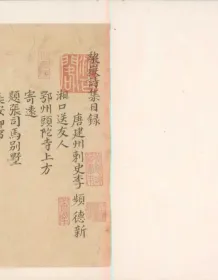 棃嶽詩集目録
唐建州刺史李 頻 德新
湘口送友人
鄂州頭陀寺上方
寄遠
題張司馬別墅